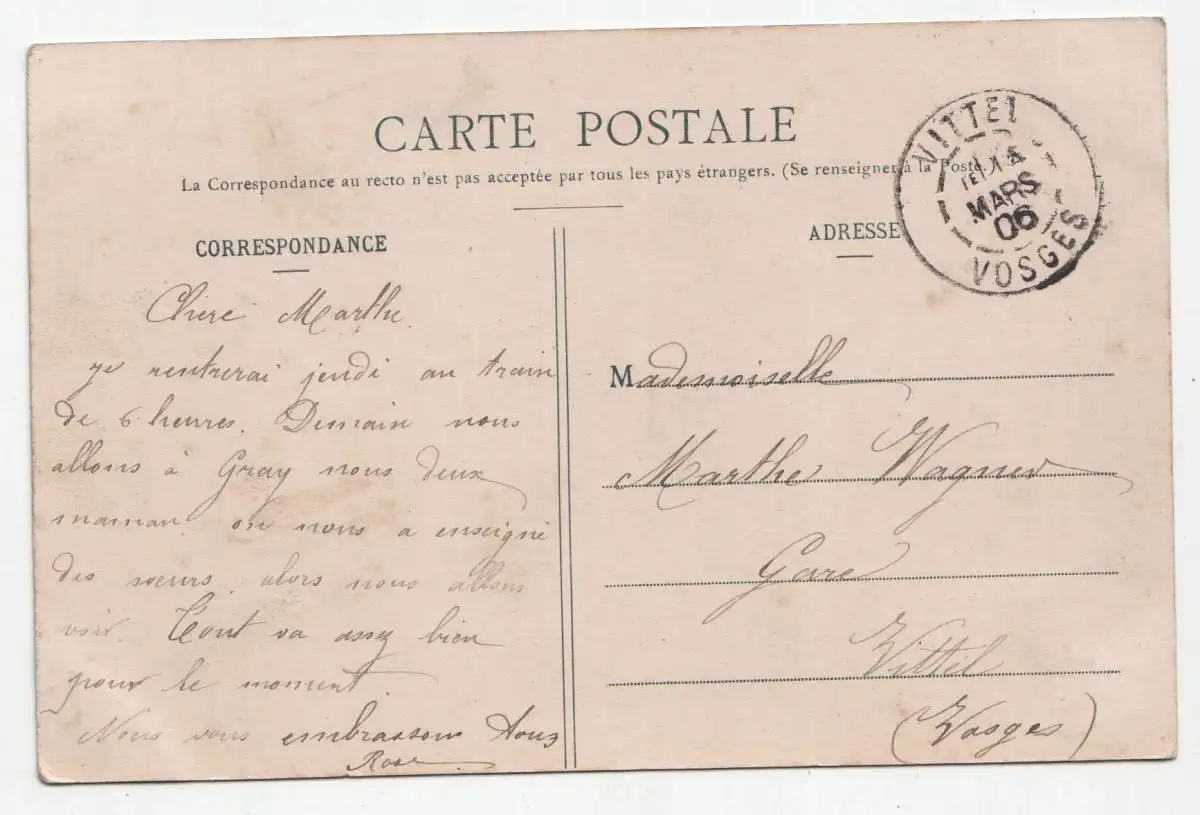 CARTE POSTALE
La Correspondance au recto n'est pas acceptée par tous les pays étrangers. (Se renseigner à la Poste.)
VITTEL
MARS
06
VOSGES
CORRESPONDANCE
Chère Marthe
je rentrerai jeudi au train
de 6 heures. Demain nous
allons à Gray nous deux
maman, on nous a enseigné
des sœurs, alors nous allons
voir. Tout va assez bien
pour le moment.
Nous vous embrassons tous
Rose
ADRESSE
Mademoiselle
Marthe Wagner
Gare
Vittel
(Vosges)